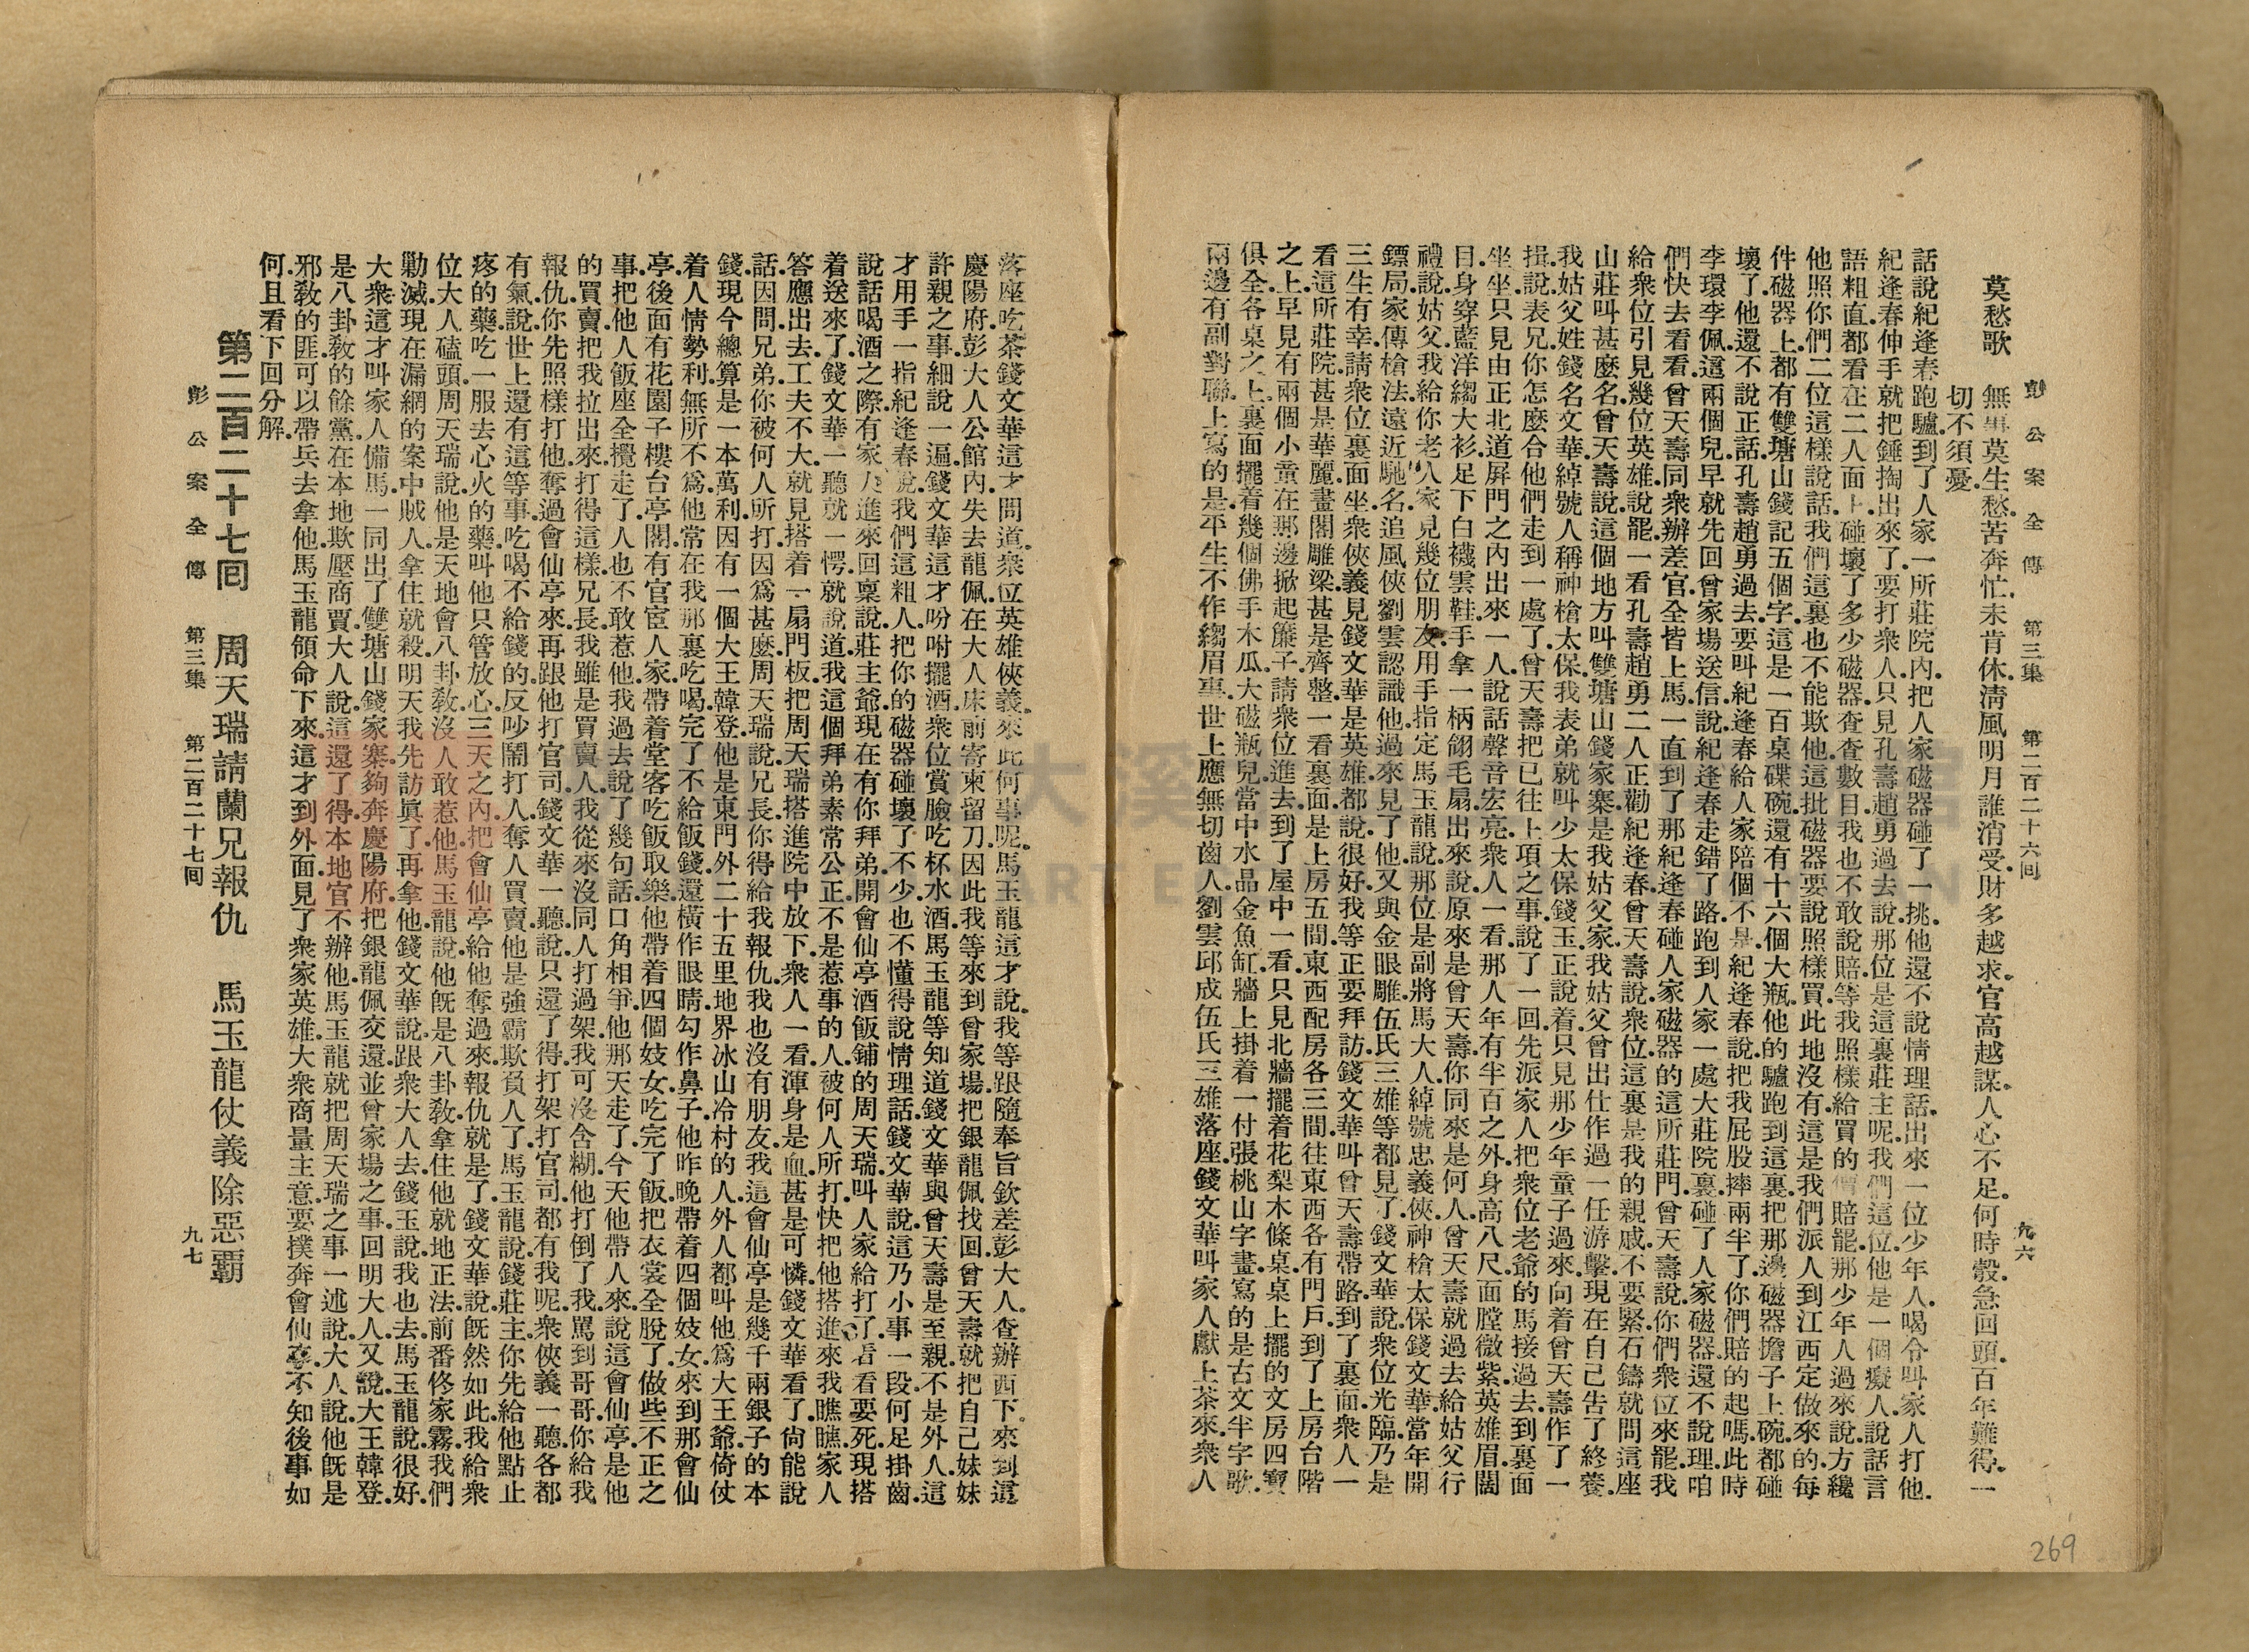 彭公案全傳　第三集　第二百二十六回　九六
莫愁歌　無事莫生愁苦奔忙.未肯休.淸風明月誰消受.財多越求.官高越謀.人心不足.何時彀.急回頭.百年難得.一
切不須憂.
話說紀逢春跑驢.到了人家一所莊院內.把人家磁器碰了一挑.他還不說情理話.出來一位少年人.喝令叫家人打他.
紀逢春伸手就把錘掏出來了.要打衆人.只見孔壽趙勇過去說.那位是這裏莊主呢.我們這位.他是一個癡人.說話言
語粗直.都看在二人面上.碰壞了多少磁器.查查數目.我也不敢說賠.等我照樣給買的賠罷.那少年人過來說.方纔
他照你們二位這樣說話.我們這裏也不能欺他.這批磁器.要說照樣買.此地沒有.這是我們派人到江西定做來的.每
件磁器上都有雙塘山錢記五個字.這是一百桌碟碗.還有十六個大瓶.他的驢跑到這裏.把那邊磁器擔子上碗都碰
壞了.他還不說正話.孔壽趙勇過去.要叫紀逢春給人家陪個不是.紀逢春說.把我屁股摔兩半了.你們賠的起嗎.此時
李環李佩.這兩個兒早就先回曾家場送信.說紀逢春走錯了路.跑到人家一處大莊院裏.碰了人家磁器.還不說理.咱
們快去看看.曾天壽同衆辦差官.全皆上馬.一直到了那紀逢春碰人家磁器的這所莊門.曾天壽說.你們衆位來罷.我
給衆位引見幾位英雄.說罷.一看孔壽趙勇二人正勸紀逢春.曾天壽說.衆位.這裏是我的親戚.不要緊.石鑄就問這座
山莊叫甚麼名.曾天壽說.這個地方叫雙塘山錢家寨.是我姑父家.我姑父曾出仕作過一任游擊.現在自己告了終養.
我姑父姓錢名文華.綽號人稱神槍太保.我表弟就叫少太保錢玉.正說着.只見那少年童子過來.向着曾天壽作了一
揖.說表兄你怎麼合他們走到一處了.曾天壽把已往上項之事.說了一回.先派家人把衆位老爺的馬接過去.到裏面
坐坐.只見由正北道屏門之內.出來一人.說話聲音宏亮.衆人一看.那人年有半百之外.身高八尺.面膛微紫.英雄眉.闊
目.身穿藍洋縐大衫.足下白襪雲鞋.手拿一柄翎毛扇.出來說.原來是曾天壽.你同來是何人.曾天壽就過去給姑父行
禮.說姑父.我給你老人家見幾位朋友.用手指定馬玉龍說.那位是副將馬大人.綽號忠義俠.神槍太保錢文華.當年開
鏢局.家傳槍法.遠近馳名.追風俠劉雲認識他.過來見了他.又與金眼雕伍氏三雄等都見了.錢文華說.衆位光臨.乃是
三生有幸.請衆位裏面坐.衆俠義見錢文華是英雄.都說很好.我等正要拜訪.錢文華叫曾天壽帶路.到了裏面.衆人一
看這所莊院.甚是華麗.畫閣雕梁.甚是齊整.一看裏面.是上房五間.東西配房各三間.往東西各有門戶.到了上房台階
之上.早見有兩個小童.在那邊掀起簾子.請衆位進去.到了屋中一看.只見北牆擺着花梨木條桌.桌上擺的文房四寶
俱全.各桌之上.裏面擺着幾個佛手木瓜.大磁瓶兒.當中水晶金魚缸.牆上掛着一付張桃山字畫.寫的是古文半字歌.
兩邊有副對聯.上寫的是.平生不作縐眉事.世上應無切齒人.劉雲邱成伍氏三雄落座.錢文華叫家人獻上茶來.衆人
落座吃茶.錢文華這才問道.衆位英雄俠義.來此何事呢.馬玉龍這才說.我等跟隨奉旨欽差彭大人.查辦西下.來到這
慶陽府.彭大人公館內失去龍佩.在大人床前寄柬留刀.因此我等來到曾家場.把銀龍佩找回.曾天壽就把自己妹妹
許親之事.細說一遍.錢文華這才吩咐擺酒.衆位賞臉.吃杯水酒.馬玉龍等知道錢文華與曾天壽是至親.不是外人.這
才用手一指紀逢春說.我們這粗人.把你的磁器碰壞了不少.也不懂得說情理話.錢文華說.這乃小事一段.何足掛齒.
說話喝酒之際.有家人進來回稟說.莊主爺.現在有你拜弟開會仙亭酒飯鋪的周天瑞.叫人家給打了.看看要死.現搭
着送來了.錢文華一聽.就一愕.就說道.我這個拜弟素常公正.不是惹事的人.被何人所打.快把他搭進來我瞧瞧.家人
答應出去.工夫不大.就見搭着一扇門板.把周天瑞搭進院中放下.衆人一看.渾身是血.甚是可憐.錢文華看了.尙能說
話.因問.兄弟.你被何人所打.因爲甚麼.周天瑞說.兄長.你得給我報仇.我也沒有朋友.我這會仙亭是幾千兩銀子的本
錢.現今總算是一本萬利.因有一個大王韓登.他是東門外二十五里地界冰山冷村的人.外人都叫他爲大王爺.倚仗
着人情勢利.無所不爲.他常在我那裏吃喝.完了不給飯錢.還橫作眼睛勾作鼻子.他昨晚帶着四個妓女.來到那會仙
亭.後面有花園子樓台亭閣.有官宦人家.帶着堂客吃飯取樂.他帶着四個妓女.吃完了飯.把衣裳全脫了.做些不正之
事.把他人飯座全攪走了.人也不敢惹他.我過去說了幾句話.口角相爭.他那天走了.今天他帶人來.說這會仙亭是他
的買賣.把我拉出來.打得這樣.兄長.我雖是買賣人.我從來沒同人打過架.我可沒含糊.他打倒了我.罵到哥哥.你給我
報仇.你先照樣打他.奪過會仙亭來.再跟他打官司.錢文華一聽.說只還了得.打架打官司.都有我呢.衆俠義一聽.各都
有氣.說世上還有這等事.吃喝不給錢的.反吵鬧打人.奪人買賣.他是強霸欺負人了.馬玉龍說.錢莊主.你先給他點止
疼的藥.吃一服去心火的藥.叫他只管放心.三天之內.把會仙亭給他奪過來.報仇就是了.錢文華說.旣然如此.我給衆
位大人磕頭.周天瑞說.他是天地會八卦教.沒人敢惹他.馬玉龍說.他旣是八卦教.拿住他就地正法.前番佟家霧.我們
勦滅.現在漏網的案中賊人.拿住就殺.明天我先訪眞了.再拿他.錢文華說.跟衆大人去.錢玉說.我也去.馬玉龍說.很好.
大衆這才叫家人備馬.一同出了雙塘山錢家寨.夠奔慶陽府.把銀龍佩交還.並曾家場之事.回明大人.又說大王韓登.
是八卦教的餘黨.在本地欺壓商賈.大人說.這還了得.本地官不辦他.馬玉龍就把周天瑞之事.一述說.大人說.他旣是
邪教的匪.可以帶兵去拿他.馬玉龍領命下來.這才到外面.見了衆家英雄.大衆商量主意.要撲奔會仙亭.不知後事如
何.且看下回分解.
第二百二十七回　周天瑞請蘭兄報仇　馬玉龍仗義除惡霸
彭公案全傳　第三集　第二百二十七回　九七
269